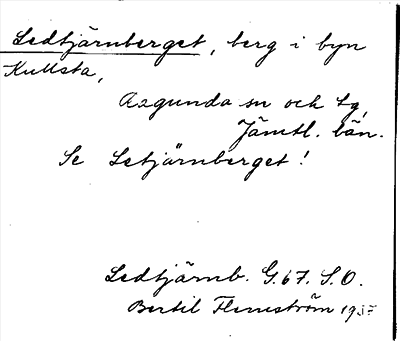 Ledtjärnberget, berg i byn
Kullsta,
Ragunda sn och tg,
Jämtl. län.
Se Letjärnberget!
Ledtjärnb. G. 67. S. O.
Bertil Flemström 1937